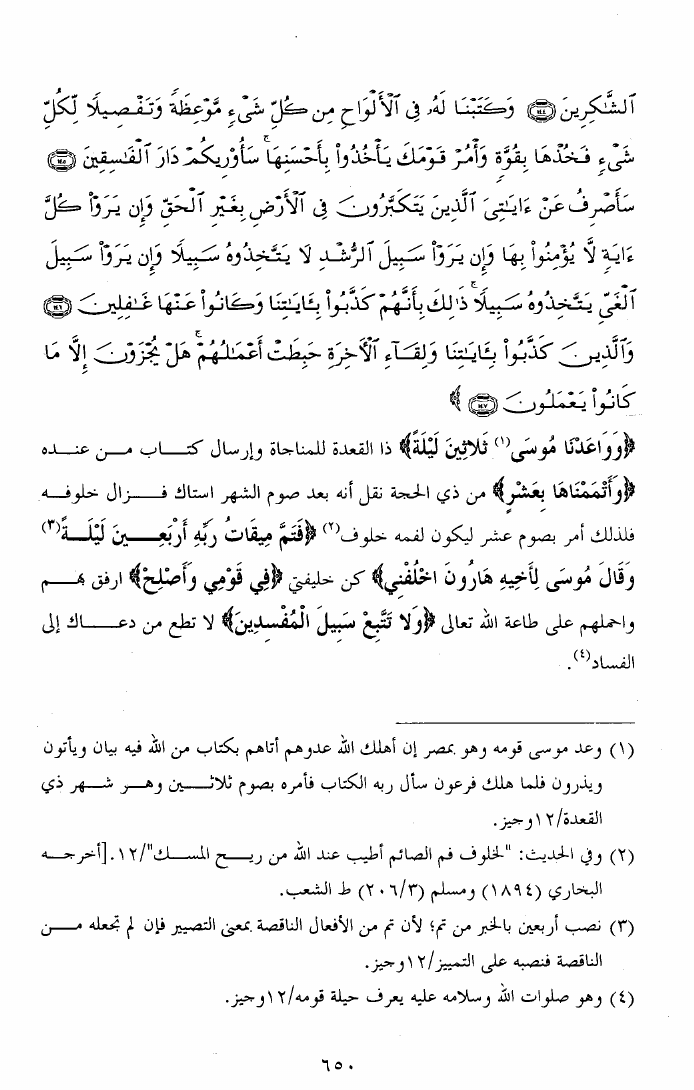 ٱلشَّٰكِرِينَ ١٤٤ وَكَتَبْنَا لَهُۥ فِى ٱلْأَلْوَاحِ مِن كُلِّ شَىْءٍ مَّوْعِظَةً وَتَفْصِيلًا لِّكُلِّ
شَىْءٍ فَخُذْهَا بِقُوَّةٍ وَأْمُرْ قَوْمَكَ يَأْخُذُوا۟ بِأَحْسَنِهَا ۚ سَأُو۟رِيكُمْ دَارَ ٱلْفَٰسِقِينَ ١٤٥
سَأَصْرِفُ عَنْ ءَايَٰتِىَ ٱلَّذِينَ يَتَكَبَّرُونَ فِى ٱلْأَرْضِ بِغَيْرِ ٱلْحَقِّ وَإِن يَرَوْا۟ كُلَّ
ءَايَةٍ لَّا يُؤْمِنُوا۟ بِهَا وَإِن يَرَوْا۟ سَبِيلَ ٱلرُّشْدِ لَا يَتَّخِذُوهُ سَبِيلًا وَإِن يَرَوْا۟ سَبِيلَ
ٱلْغَىِّ يَتَّخِذُوهُ سَبِيلًا ۚ ذَٰلِكَ بِأَنَّهُمْ كَذَّبُوا۟ بِـَٔايَٰتِنَا وَكَانُوا۟ عَنْهَا غَٰفِلِينَ ١٤٦
وَٱلَّذِينَ كَذَّبُوا۟ بِـَٔايَٰتِنَا وَلِقَآءِ ٱلْأَخِرَةِ حَبِطَتْ أَعْمَٰلُهُمْ ۚ هَلْ يُجْزَوْنَ إِلَّا مَا
كَانُوا۟ يَعْمَلُونَ ١٤٧ ﴾
﴿وَوَاعَدْنَا مُوسَى(١) ثَلاثِينَ لَيْلَةً﴾ ذا القعدة للمناجاة وإرسال كتاب من عنده
﴿وَأَتْمَمْنَاهَا بِعَشْرٍ﴾ من ذي الحجة نقل أنه بعد صوم الشهر استاك فزال خلوفه
فلذلك أمر بصوم عشر ليكون لفمه خلوف(٢) ﴿فَتَمَّ مِيقَاتُ رَبِّهِ أَرْبَعِينَ لَيْلَةً(٣)
وَقَالَ مُوسَى لِأَخِيهِ هَارُونَ اخْلُفْنِي﴾ كن خليفتي ﴿فِي قَوْمِي وَأَصْلِحْ﴾ ارفق بهم
واحملهم على طاعة الله تعالى ﴿وَلا تَتَّبِعْ سَبِيلَ الْمُفْسِدِينَ﴾ لا تطع من دعاك إلى
الفساد(٤).
(١) وعد موسى قومه وهو بمصر إن أهلك الله عدوهم أتاهم بكتاب من الله فيه بيان ويأتون
ويذرون فلما هلك فرعون سأل ربه الكتاب فأمره بصوم ثلاثين وهر شهر ذي
القعدة/١٢وجيز.
(٢) وفي الحديث: "لخلوف فم الصائم أطيب عند الله من ريح المسك"/١٢.[أخرجه
البخاري (١٨٩٤) ومسلم (٢٠٦/٣) ط الشعب.
(٣) نصب أربعين بالخبر من تم؛ لأن تم من الأفعال الناقصة بمعنى التصيير فإن لم تجعله من
الناقصة فنصبه على التمييز/١٢وجيز.
(٤) وهو صلوات الله وسلامه عليه يعرف حيلة قومه/١٢وجيز.
٦٥٠